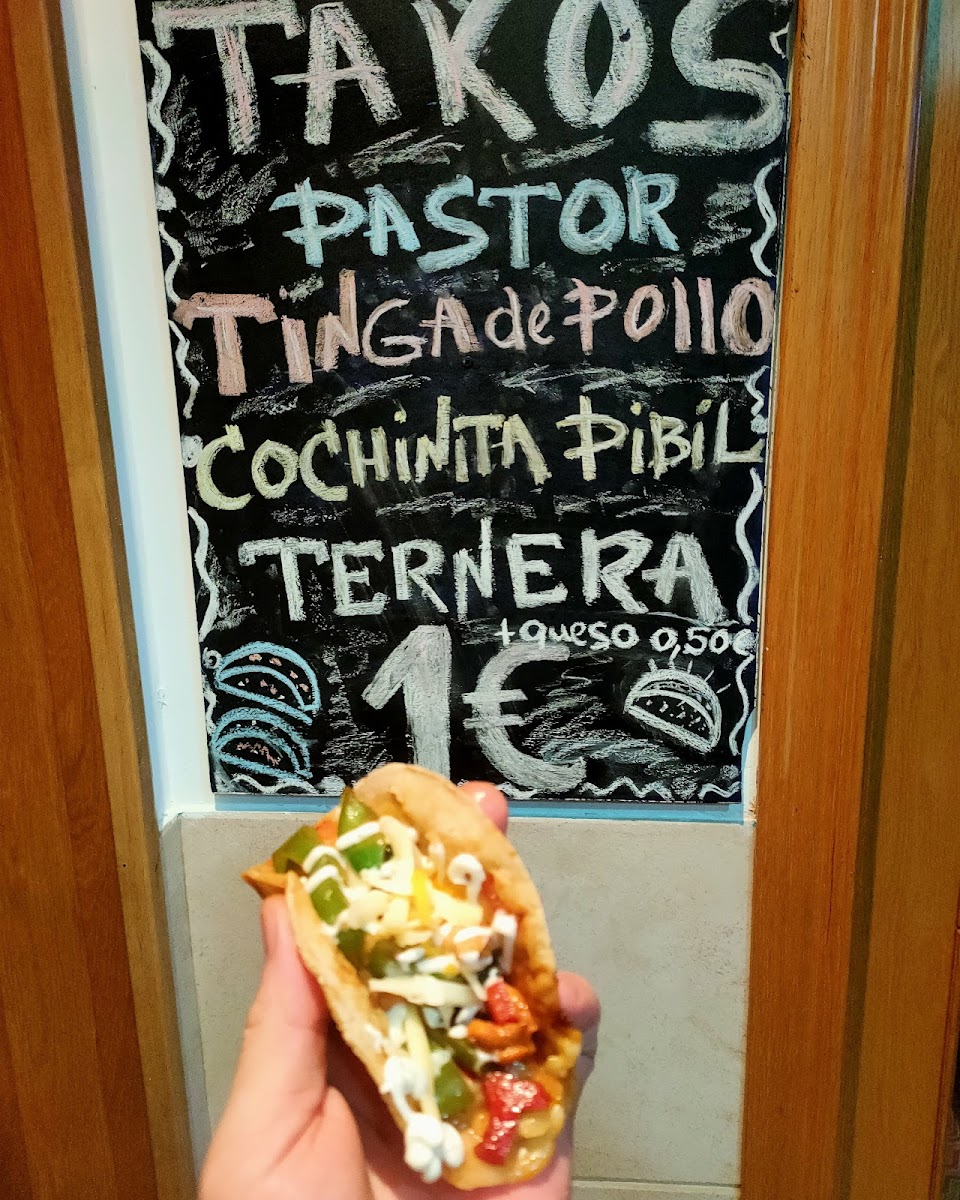 TAKOS
PASTOR
TiNGA de POllO
COCHiNiTA PiBiL
TERNERA
+ queso 0,50€
1€